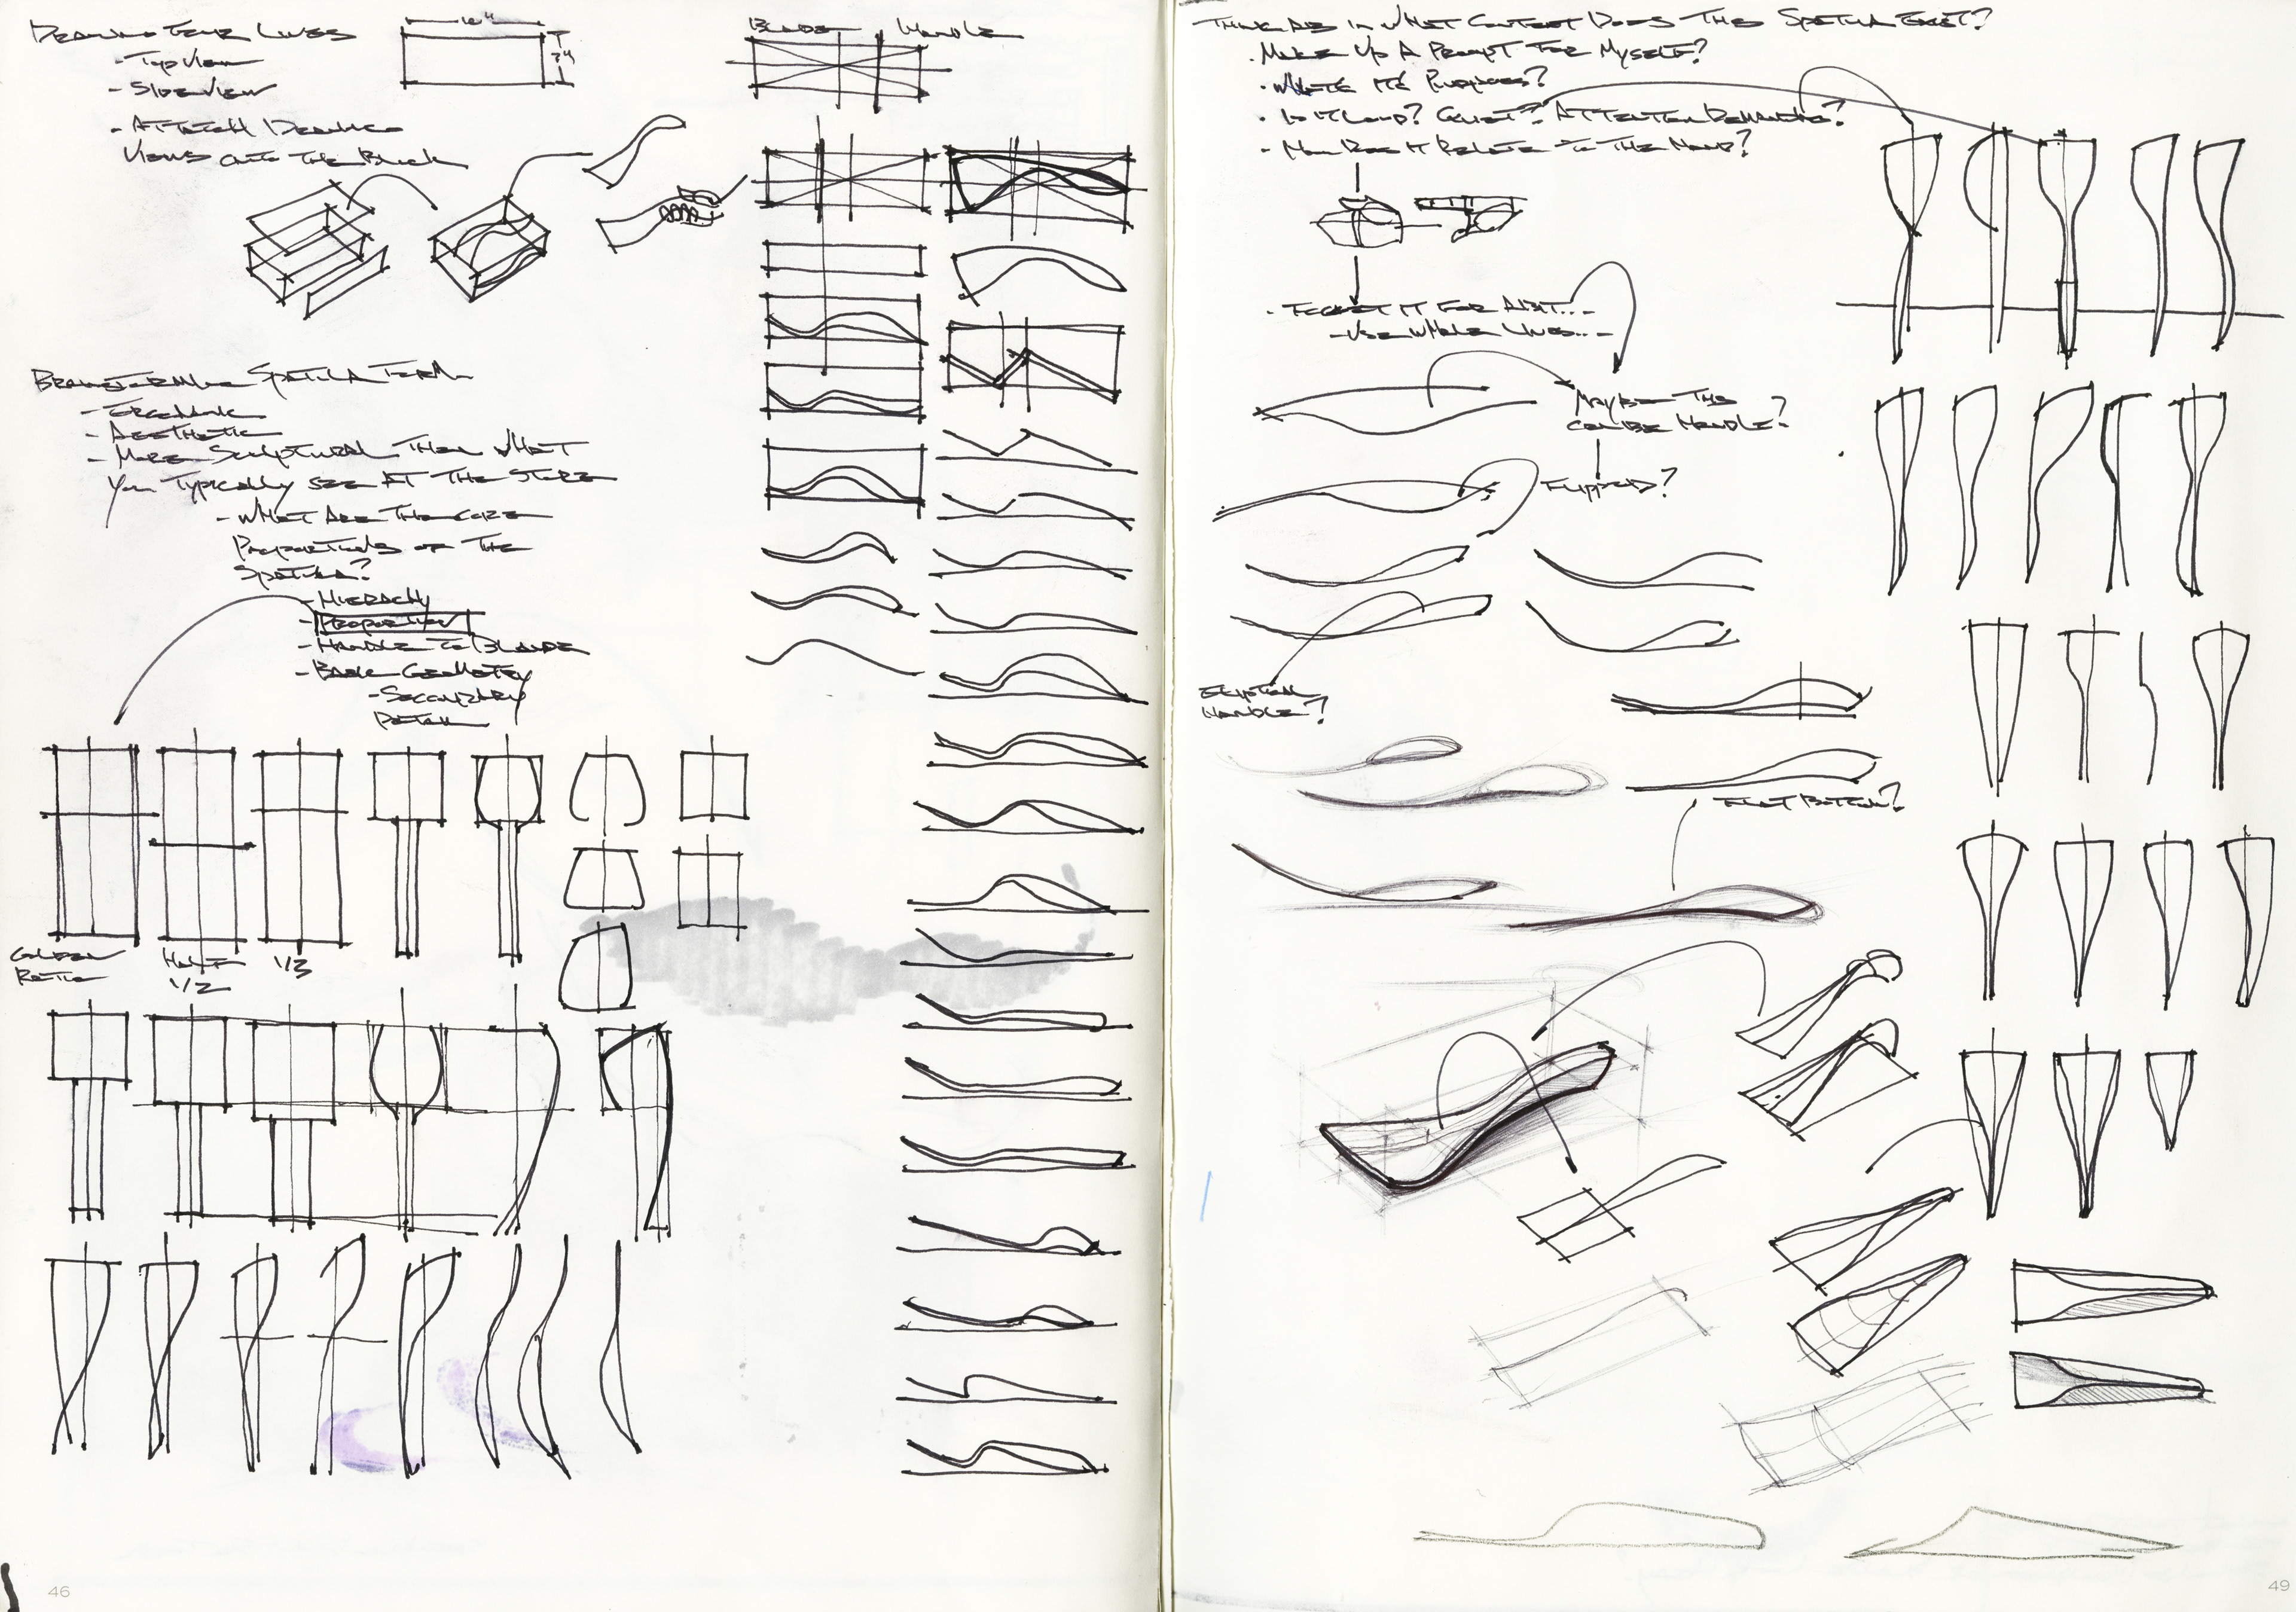 Drawing Four Lines
- Top View
- Side View
- Attatch Drawing
Views onto the Block
12"
3"
Blade Handle
Brainstorming Spatula Form
- Ergonomic
- Aesthetic
- More Sculptural Then What
You Typically see at the Store
- What are the core
Proportions of the
Spatula?
- Hierachy
- Proportion
- Handle to Blade
- Basic Geometry
- Secondary
Detail
Golden
Ratio
Half
1/2
1/3
46
Thinking in What Context Does This Spatula Exist?
. Make Up A Prompt For Myself?
. What's its Purpose?
. Is it Loud? Quiet? Attention Demanding?
- How Does it Relate to the Hand?
. Forget it for A Bit...
- Use Whole Lines...
Maybe this
can be Handle?
Flipped?
Eliptical
Handle?
Flat Bottom?
49